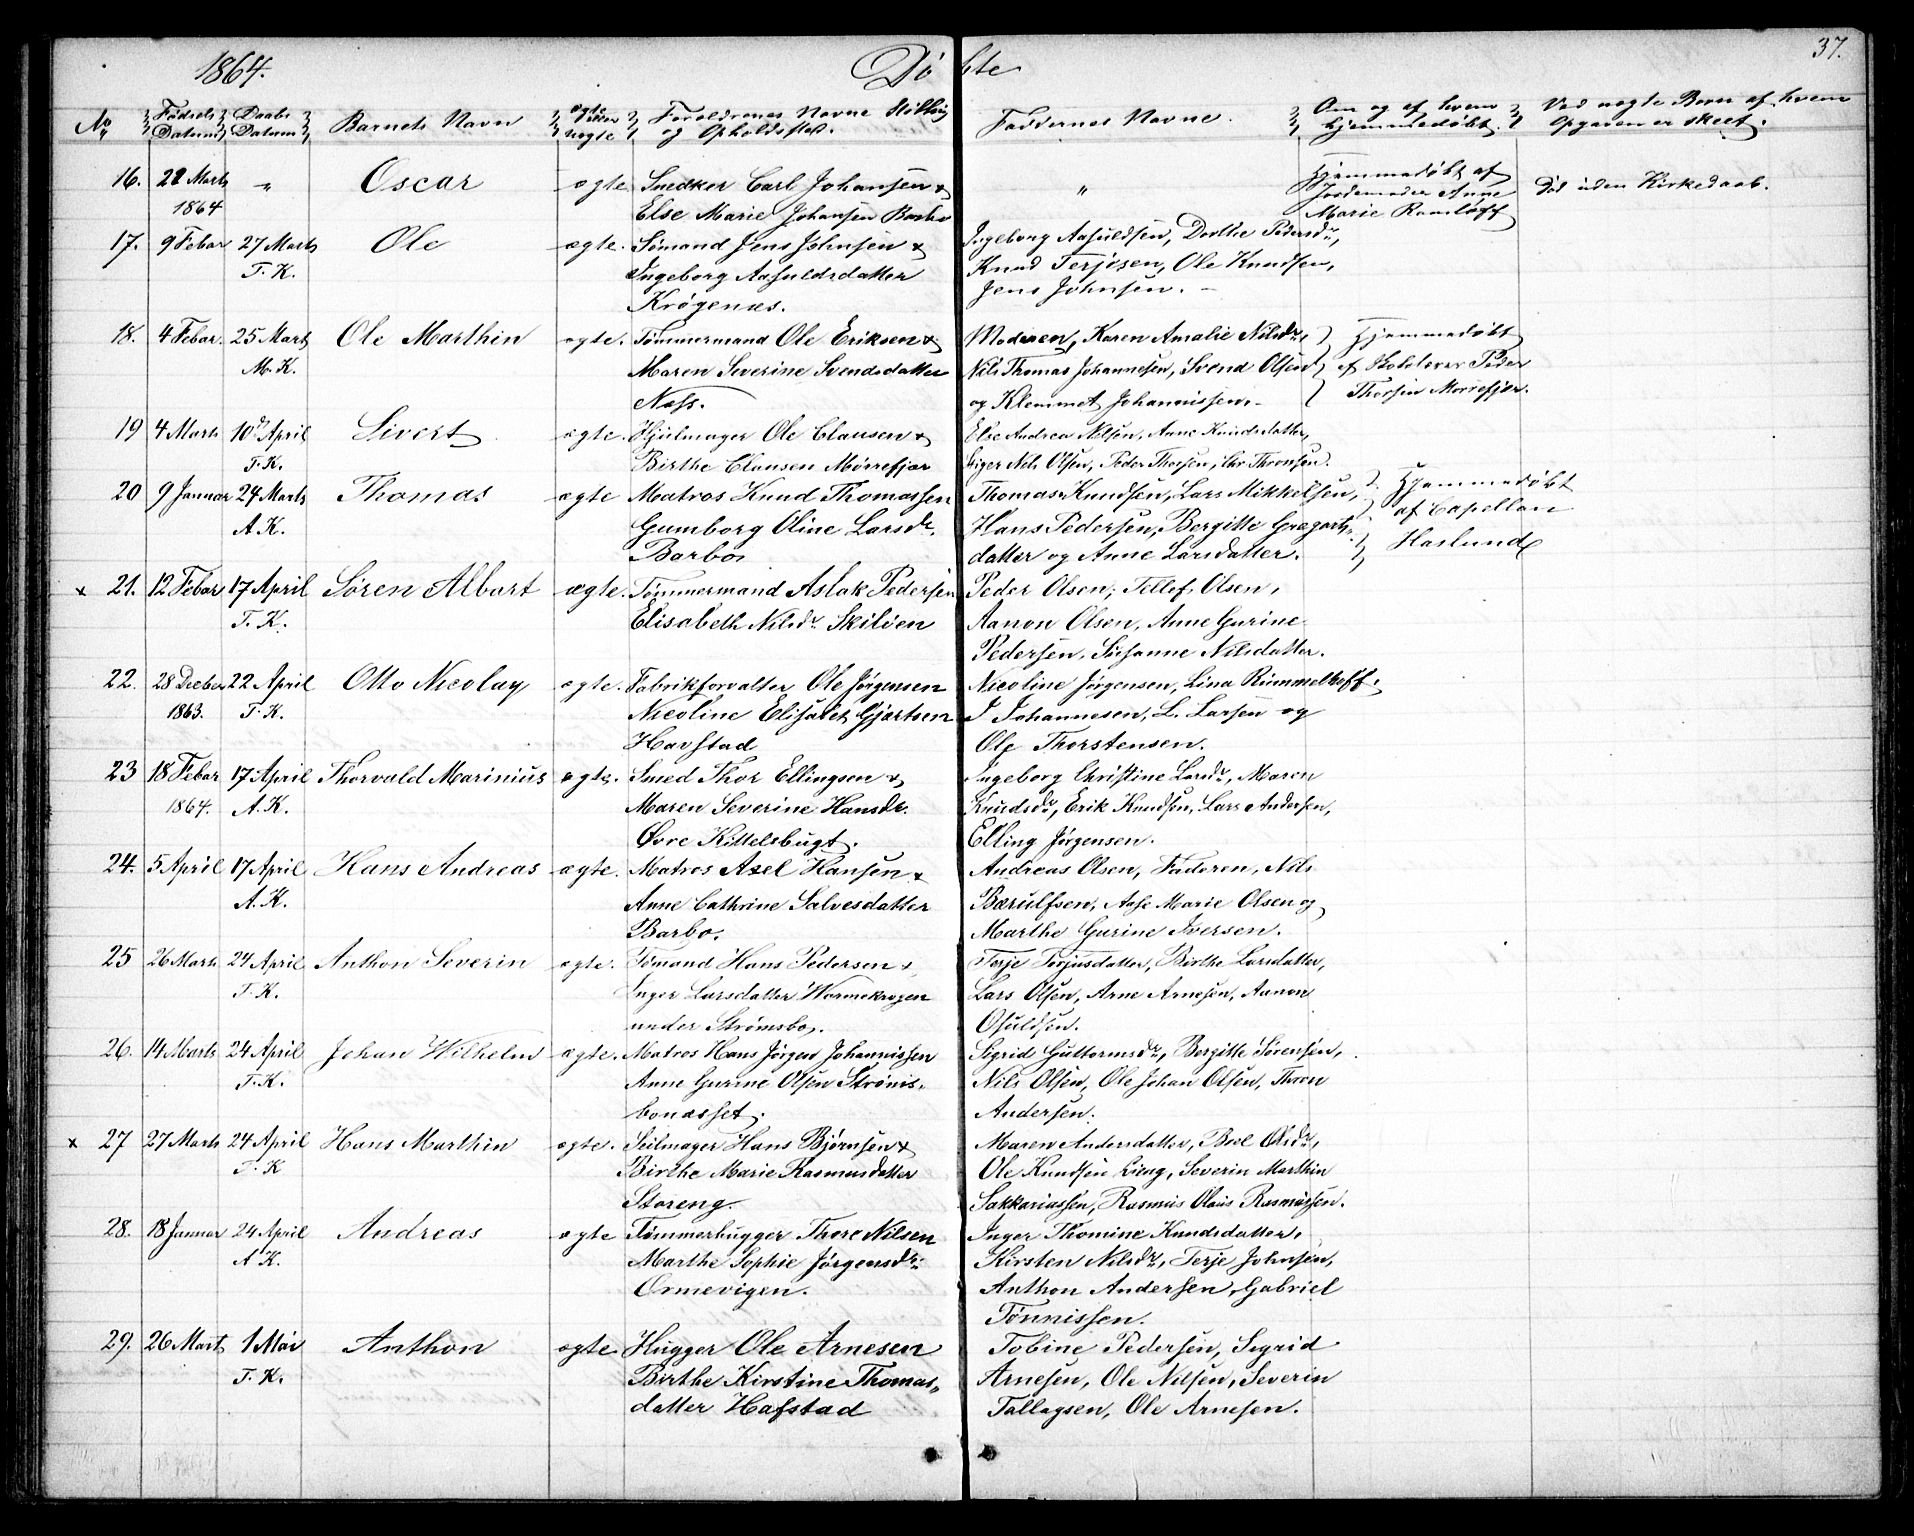 1864. Døbte 37.
No Fødsels Datum Daabs Datum Barnets Navn ægte eller uægte Forældrenes Navne Stilling og Opholdssted. Faddernes Navne. Om og af hvem hjemmedøbt. Ved uægte Børn af hvem Opgaven er skeet.
16. 22 Marts „ Oscar ægte Snedker Carl Johansen & „ Hjemmedøbt af Død uden Kirkedaab.
1864 Else Marie Johansen Barbo Jordemoder Anne
Marie Ramløff
17. 9 Febar 27 Marts Ole ægte. Sømand Jens Johnsen & Ingeborg Aasuldsen, Dorthe Pedersdr,
T. K. Ingeborg Aasuldsdatter Knud Terjesen, Ole Knudsen,
Krøgenæs. Jens Johnsen. –
18. 4 Febar. 25 Marts Ole Marthin ægte. Tømmermand Ole Eriksen & Moderen, Karen Amalie Nilsdr, Hjemmedøbt
M. K. Maren Severine Svendsdatter Nils Thomas Johannesen, Svend Olsen af Skolelærer Peder
Næss. og Klemmet Johannissen. – Thorsen Mørrefjær.
19 4 Marts 10d April Sivert ægte. Hjulmager Ole Clausen & Else Andrea Nilsen, Anne Knudsdatter,
T. K. Birthe Clausen Mørrefjær Eiger Nils Olsen, Peder Thorsen, Chr Thronsen.
20 9 Januar 24 Marts Thomas ægte Matros Knud Thomassen Thomas Knudsen, Lars Mikkelsen, Hjemmedøbt
A. K. Gumborg Oline Larsdr. Hans Pedersen, Bergitte Gregarts- af Capellan
Barbo datter og Anne Larsdatter. Haslund
x 21. 12 Febar 17 April Søren Albart ægte. Tømmermand Aslak Pedersen Peder Olsen, Tellef Olsen,
T. K. Elisabeth Nilsdr Skilsøen Aanon Olsen, Anne Gurine
Pedersen, Susanne Nilsdatter.
22. 28 Decber 22 April Otto Nicolay ægte. Fabrikforvalter Ole Jørgensen Nicoline Jørgensen, Lina Rummelhoff.
1863. T. K. Nicoline Elisabet Gjertsen J Johannesen, L. Larsen og
Havstad Ole Thorstensen.
23 18 Febar 17 April Thorvald Marinius ægte. Smed Thor Ellingsen & Ingeborg Christine Larsdr, Maren
1864. A. K. Maren Severine Hansdr. Knudsdr, Erik Knudsen, Lars Andersen,
Øvre Kittelsbugt. Elling Jørgensen.
24. 5 April 17 April Hans Andreas ægte. Matros Axel Hansen & Andreas Olsen, Faderen, Nils
A. K. Anne Cathrine Salvesdatter Bærulfsen, Aase Marie Olsen og
Barbo. Marthe Gurine Iversen.
25 26 Marts 24 April Anthon Severin ægte. Sømand Hans Pedersen & Terje Terjusdatter, Birthe Larsdatter,
T. K. Inger Larsdatter Warmekrogen Lars Olsen, Arne Arnesen, Aanon
under Strømsbo. Osuldsen.
26. 14 Marts 24 April Johan Wilhelm ægte. Matros Hans Jørgen Johannissen Sigrid Guttormsdr, Bergitte Sørensen,
T. K. Anne Gurine Olsen Strøms- Nils Olsen, Ole Johan Olsen, Thron
bonæsset. Andersen.
x 27 27 Marts 24 April Hans Marthin ægte. Seilmager Hans Bjørnsen & Maren Andersdatter, Beel Olsdr,
T. K Birthe Marie Rasmusdatter Ole Knudsen Lieng, Severin Marthin
Storeng. Sakkariassen, Rasmus Olaus Rasmussen.
28. 18 Januar 24 April Andreas ægte Tømmerhugger Thore Nilsen Inger Thomine Knudsdatter,
A K. Marthe Sophie Jørgensdr. Kirsten Nilsdr, Terje Johnsen,
Ormevigen. Anthon Andersen, Gabriel
Tønnissen.
29. 26 Mart 1 Mai Anthon ægte Hugger Ole Arnesen Tobine Pedersen, Sigrid
T. K. Birthe Kirstine Thomas- Arnesen, Ole Nilsen, Severin
datter Hafstad Tallagsen, Ole Arnesen.